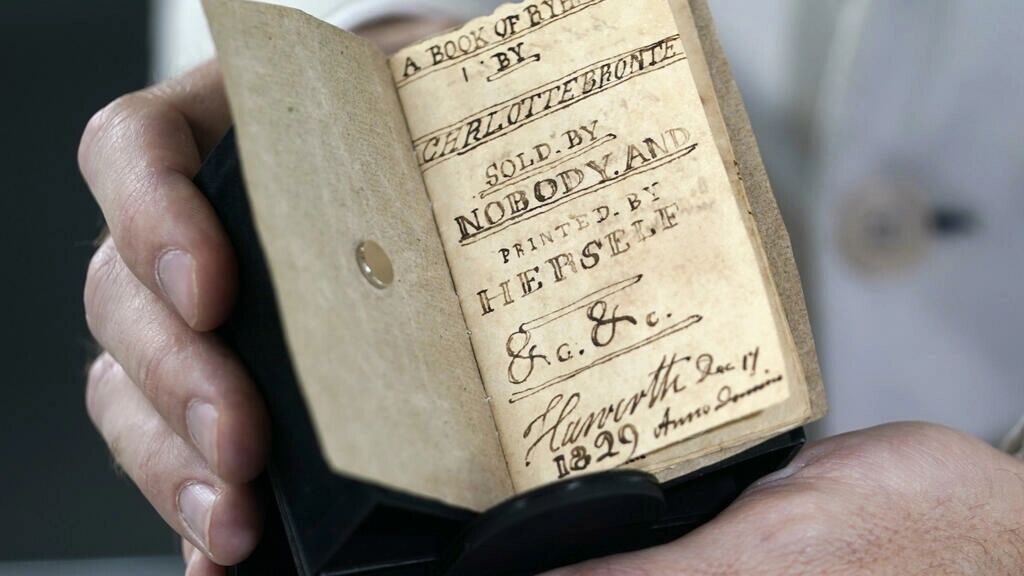 A BOOK OF
BY
CHRLOTTE BRONTE
SOLD. BY
NOBODY. AND
PRINTED. BY
HERSELF
&c. &c.
Haworth Dec 17.
1829 Anno Domini